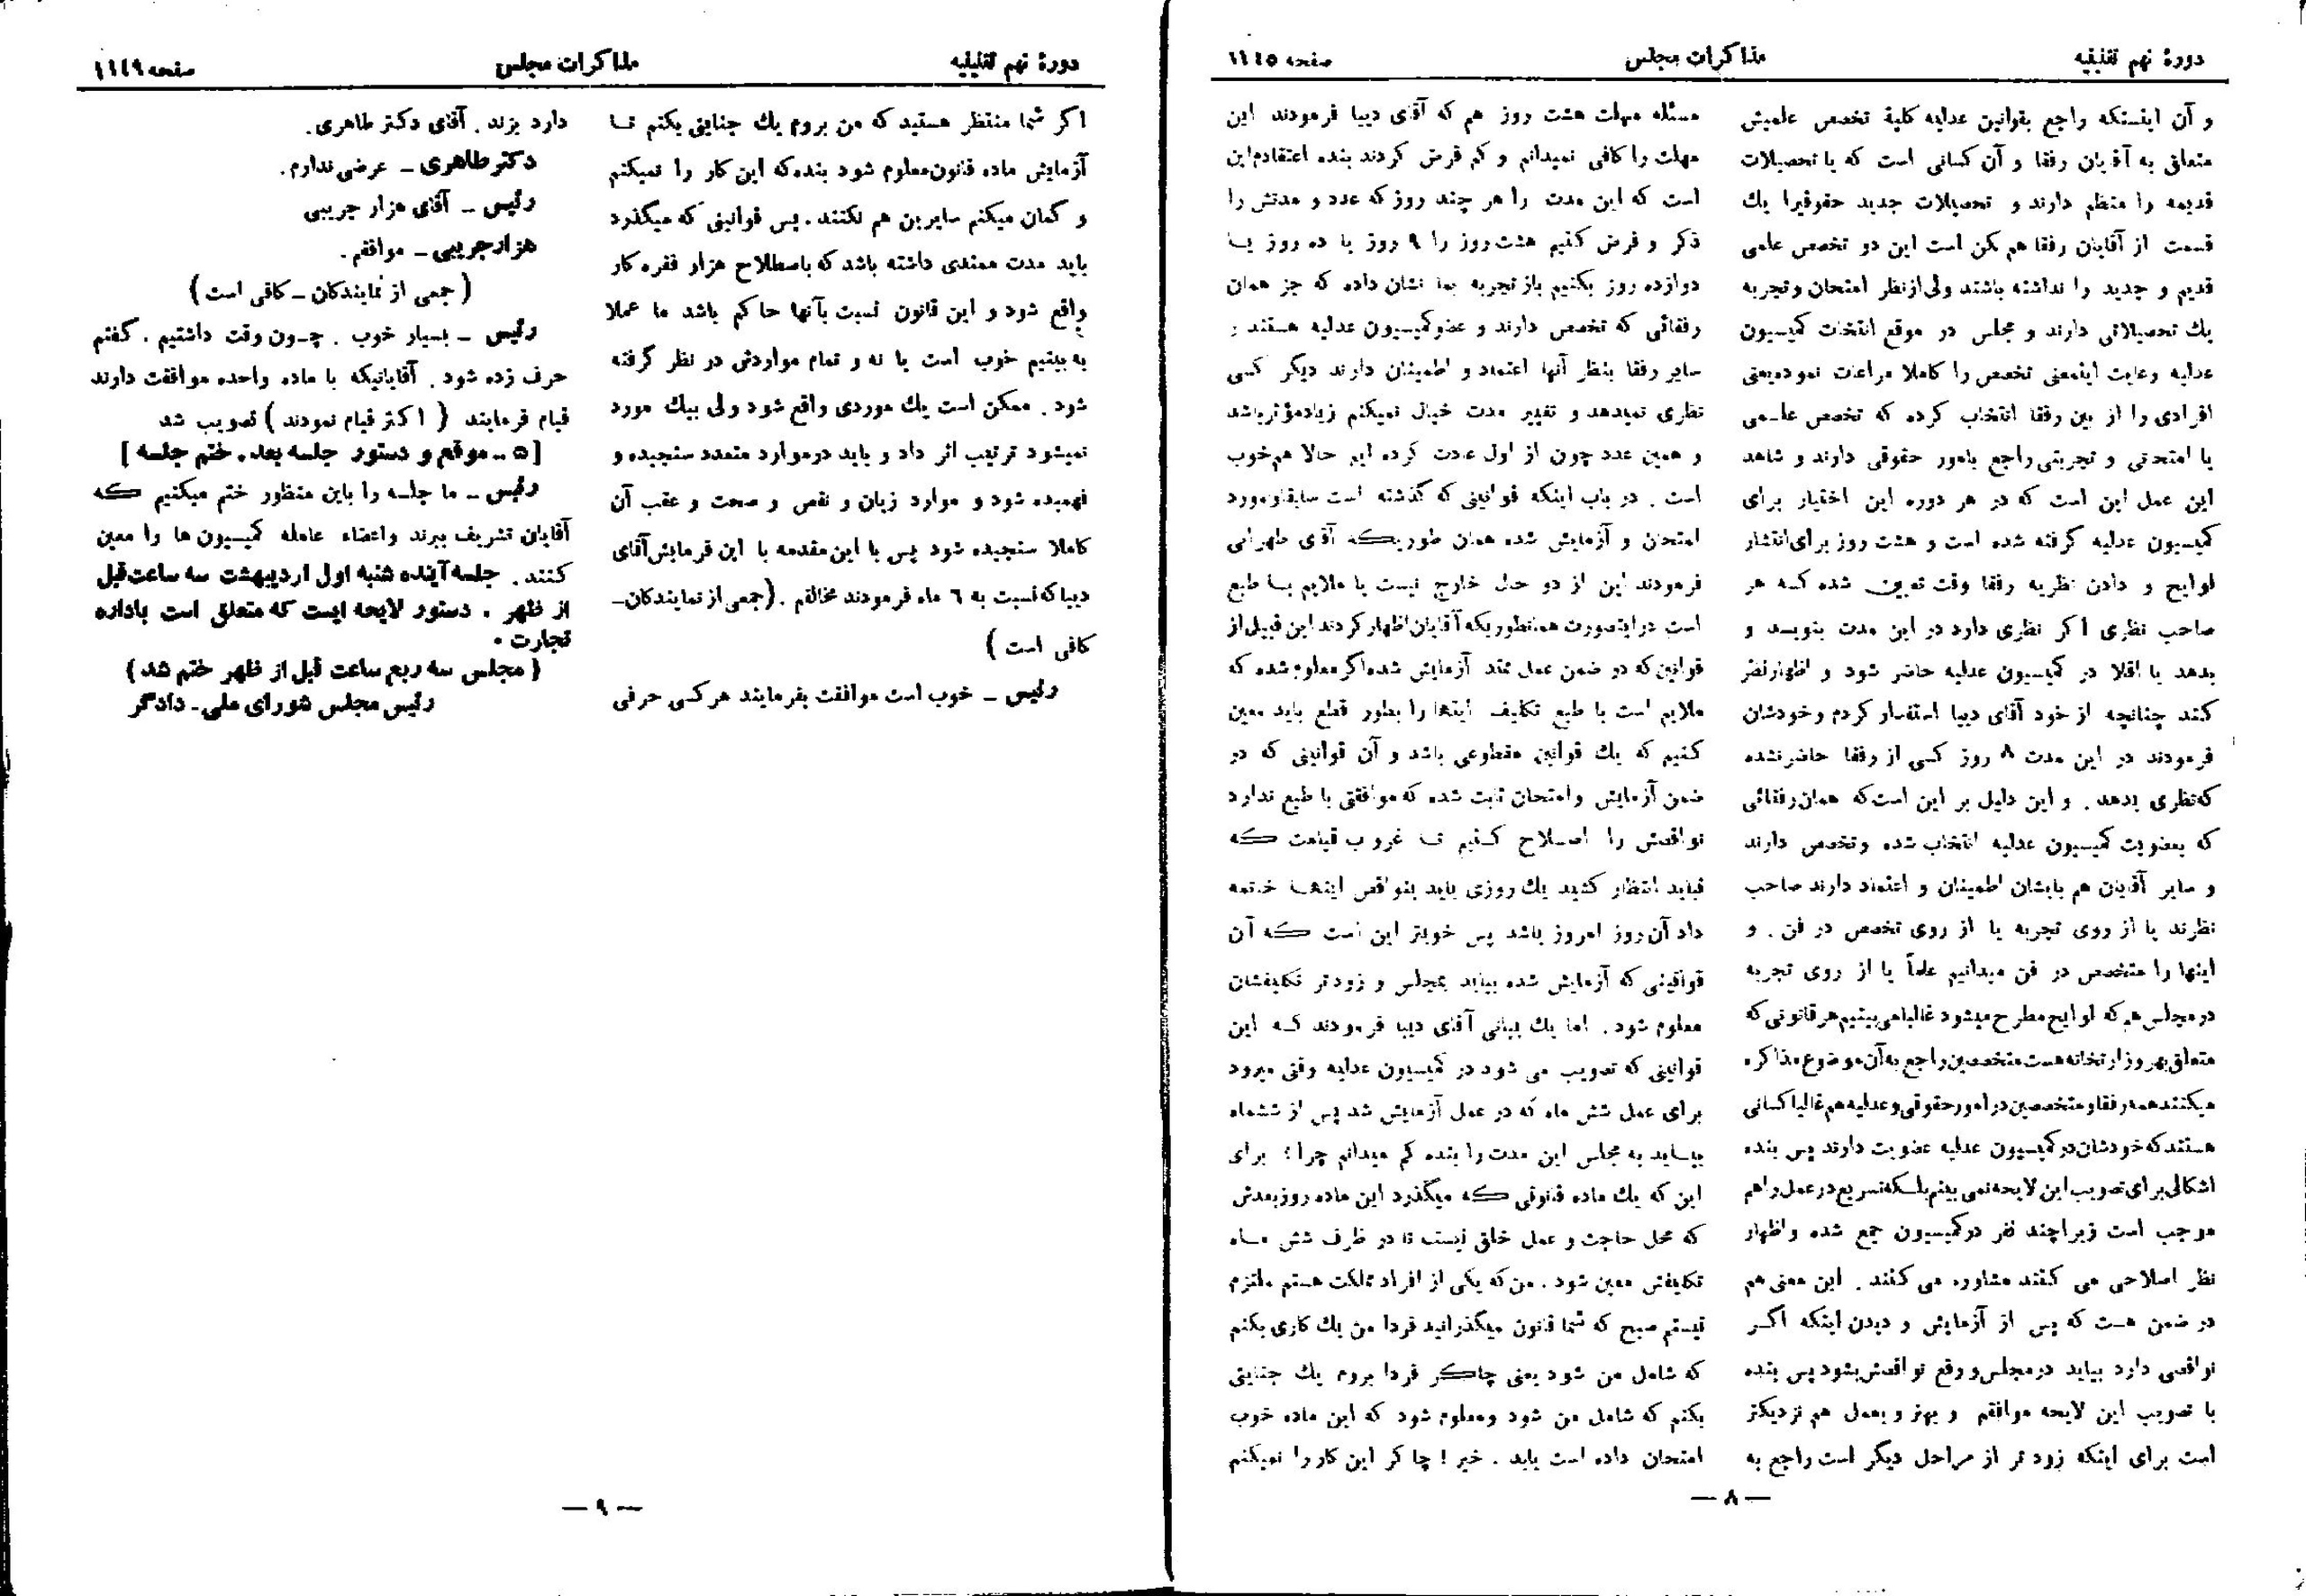 دورهٔ نهم تقنینیه
مذاکرات مجلس
صفحه ۱۱٤٥
و آن اینستکه راجع بقوانین عدلیه کلیهٔ تخصص علمیش
متعلق به آقایان رفقا و آن کسانی است که یا تحصیلات
قدیمه را منظم دارند و تحصیلات جدید حقوقیرا یك
قسمت از آقایان رفقا هم ممکن است این دو تخصص علمی
قدیم و جدید را نداشته باشند ولی ازنظر امتحان و تجربه
یك تحصیلاتی دارند و مجلس در موقع انتخاب کمیسیون
عدلیه رعایت اینمعنی تخصص را کاملا مراعات نموده یعنی
افرادی را از بین رفقا انتخاب کرده که تخصص علـمی
یا امتحانی و تجربتی راجع بامور حقوقی دارند و شاهد
این عمل این است که در هر دوره این اختیار برای
کمیسیون عدلیه گرفته شده است و هشت روز برای انتشار
لوایح و دادن نظریه رفقا وقت تعیین شده کـه هر
صاحب نظری اگر نظری دارد در این مدت بنویسد و
بدهد یا اقلا در کمیسیون عدلیه حاضر شود و اظهار نظر
کند چنانچه از خود آقای دیبا استفسار کردم و خودشان
فرمودند در این مدت ۸ روز کسی از رفقا حاضر نشده
که نظری بدهد . و این دلیل بر این است که همان رفقائی
که بعضویت کمیسیون عدلیه انتخاب شده و تخصص دارند
و سایر آقایان هم بایشان اطمینان و اعتماد دارند صاحب
نظرند یا از روی تجربه یا از روی تخصص در فن . و
اینها را متخصص در فن میدانیم علماً یا از روی تجربه
در مجلس هم که لوایح مطرح میشود غالبا می بینیم هر قانونی که
متعلق بهر وزارتخانه هست متخصصین راجع به آن موضوع مذاکره
میکنند همه رفقا و متخصصین در امور حقوقی و عدلیه هم غالبا کسانی
هستند که خودشان در کمیسیون عدلیه عضویت دارند پس بنده
اشکالی برای تصویب این لایحه نمی بینم بلـکه تسریع در عمل را هم
موجب است زیرا چند نفر در کمیسیون جمع شده و اظهار
نظر اصلاحی می کنند مشاوره می کنند . این معنی هم
در ضمن هست که پس از آزمایش و دیدن اینکه اگـر
نواقصی دارد بیاید در مجلس و رفع نواقصش بشود پس بنده
با تصویب این لایحه موافقم و بهتر و بعمل هم نزدیکتر
است برای اینکه زود تر از مراحل دیگر است راجع به
مسئله مهلت هشت روز هم که آقای دیبا فرمودند این
مهلت را کافی نمیدانم و کم فرض کردند بنده اعتقادم این
است که این مدت را هر چند روز که عدد و مدتش را
ذکر و فرض کنیم هشت روز را ۹ روز یا ده روز یـا
دوازده روز بکنیم باز تجربه بما نشان داده که جز همان
رفقائی که تخصص دارند و عضو کمیسیون عدلیه هستند و
سایر رفقا بنظر آنها اعتماد و اطمینان دارند دیگر کسی
نظری نمیدهد و تغییر مدت خیال نمیکنم زیاد مؤثر باشد
و همین عدد چون از اول عادت کرده ایم حالا هم خوب
است . در باب اینکه قوانینی که گذشته است سابقا و مورد
امتحان و آزمایش شده همان طوریکه آقای طهرانی
فرمودند این از دو حال خارج نیست یا ملایم بـا طبع
است در اینصورت همانطوریکه آقایان اظهار کردند این قبیل از
قوانین که در ضمن عمل شد آزمایش شده اگر معلوم شده که
ملایم است با طبع تکلیف اینها را بطور قطع باید معین
کنیم که یك قوانین مقطوعی باشد و آن قوانینی که در
ضمن آزمایش و امتحان ثابت شده که موافقتی با طبع ندارد
نواقصش را اصـلاح کـنیم تـا غروب قیامت کـه
نباید انتظار کشید یك روزی باید بنواقص اینهـا خاتمه
داد آن روز امروز باشد پس خوبتر این است کـه آن
قوانینی که آزمایش شده بیاید بمجلس و زودتر تکلیفشان
معلوم شود . اما یك بیانی آقای دیبا فرمودند کـه این
قوانینی که تصویب می شود در کمیسیون عدلیه وقتی میرود
برای عمل شش ماه که در عمل آزمایش شد پس از ششماه
بیـاید به مجلس این مدت را بنده کم میدانم چرا ؟ برای
این که یك ماده قانونی کـه میگذرد این ماده روز بعدش
که محل حاجت و عمل خلق نیست تا در ظرف شش مـاه
تکلیفش معین شود . من که یکی از افراد مملکت هستم ملتزم
نیستم صبح که شما قانون میگذرانید فردا من یك کاری بکنم
که شامل من شود یعنی چاکـر فردا بروم یك جنایتی
بکنم که شامل من شود و معلوم شود که این ماده خوب
امتحان داده است یابد . خیر ! چاکر این کار را نمیکنم
— ۸ —
دورهٔ نهم تقنینیه
مذاکرات مجلس
صفحه ۱۱٤۹
اگر شما منتظر هستید که من بروم یك جنایتی بکنم تـا
آزمایش ماده قانون معلوم شود بنده که این کار را نمیکنم
و گمان میکنم سایرین هم نکنند . پس قوانینی که میگذرد
باید مدت ممتدی داشته باشد که باصطلاح هزار فقره کار
واقع شود و این قانون نسبت بآنها حاکم باشد ما عملا
به بینیم خوب است یا نه و تمام مواردش در نظر گرفته
شود . ممکن است یك موردی واقع شود ولی بیك مورد
نمیشود ترتیب اثر داد و باید در موارد متعدد سنجیده و
فهمیده شود و موارد زیان و نقص و صحت و عقب آن
کاملا سنجیده شود پس با این مقدمه با این فرمایش آقای
دیبا که نسبت به ٦ ماه فرمودند مخالفم . (جمعی از نمایندکان ـ
کافی است )
رئیس ـ خوب است موافقت بفرمایند هر کسی حرفی
دارد بزند . آقای دکتر طاهری .
دکتر طاهری ـ عرضی ندارم .
رئیس ـ آقای هزار جریبی
هزارجریبی ـ موافقم .
( جمعی از نمایندکان ـ کافی است )
رئیس ـ بسیار خوب . چـون وقت داشتیم . گفتم
حرف زده شود . آقایانیکه با ماده واحده موافقت دارند
قیام فرمایند ( اکثر قیام نمودند ) تصویب شد
[ ٥ ـ موقع و دستور جلسه بعد . ختم جلسه ]
رئیس ـ ما جلسه را باین منظور ختم میکنیم کـه
آقایان تشریف ببرند واعضاء عامله کمیسیون ها را معین
کنند . جلسه آینده شنبه اول اردیبهشت سه ساعت قبل
از ظهر . دستور لایحه ایست که متعلق است باداره
تجارت .
( مجلس سه ربع ساعت قبل از ظهر ختم شد )
رئیس مجلس شورای ملی ـ دادگر
— ۹ —